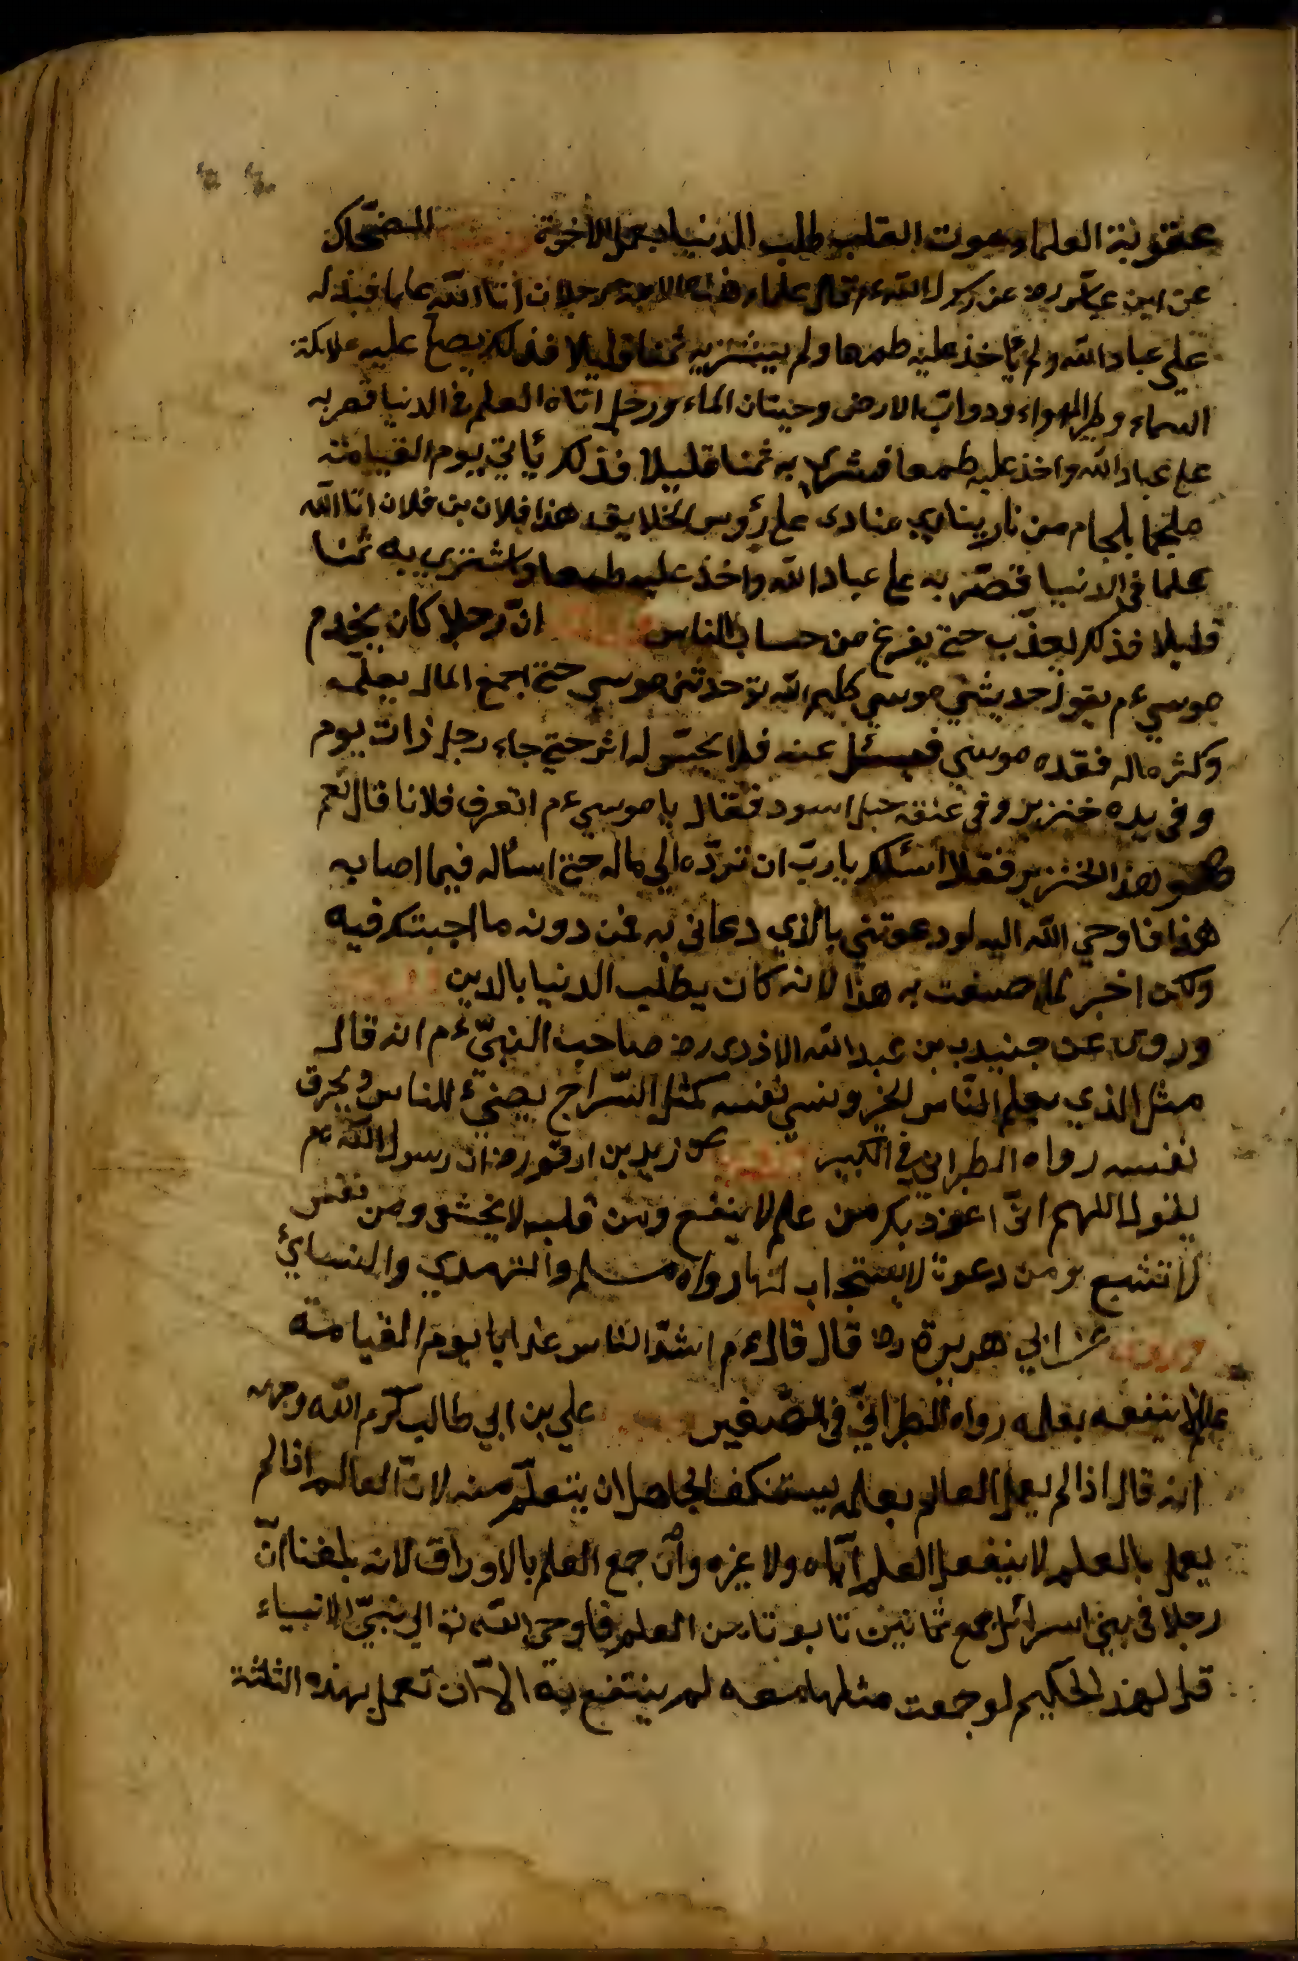 عقوبة العلماء موت القلب طلب الدنيا بعمل الاخرة الضحاك
عن ابن عباس رض عن رسول الله عم قال علماء هذه الامة رجلان اتا الله علما فبذله
على عباد الله ولم يأخذ عليه طمعا ولم يشتر به ثمنا قليلا فذلك يصلى عليه ملائكة
السماء وطير الهواء ودواب الارض وحيتان الماء ورجل اتاه العلم في الدنيا قصر به
على عباد الله واخذ عليه طمعا فشرى به ثمنا قليلا فذلك يأتي يوم القيامة
ملجما بلجام من نار ينادي منادى على رؤس الخلايق هذا فلان بن فلان اتا الله
علما في الدنيا فضن به على عباد الله واخذ عليه طمعا واشترى به ثمنا
قليلا فذلك يعذب حتى يفرغ من حساب الناس ان رجلا كان يخدم
موسى عم يقول حديثني موسى كليم الله تو حدثني موسى حتى اجمع المال بعلمه
وكثر ماله ففقده موسى فيسئل عنه فلا يحس له اثر حتى جاء رجل ذات يوم
وفى يده خنزير وفى عنقه حبل اسود فقال يا موسى عم اتعرف فلانا قال نعم
هو هذا الخنزير فقال اسئلك يا رب ان تردّه الى حاله حتى اسأله فيما اصابه
هذا فاوحى الله اليه لو دعوتني بالذي دعانى به فمن دونه ما اجبتك فيه
ولكن اخبر لما صنعت به هذا لانه كان يطلب الدنيا بالدين
وروى عن جنيدب بن عبد الله الازدى رض صاحب النبيّ عم انه قال
مثل الذي يعلم النّاس الخير ونسي نفسه كمثل السّراج يضيء للناس ويحرق
نفسه رواه الطبراني في الكبير عن زيد بن ارقم رض ان رسول الله عم
يقول اللهم انّى اعوذ بك من علم لا ينفع ومن قلب لا يخشع ومن نفس
لا تشبع ومن دعوة لا يستجاب لها رواه مسلم والترمذي والنسائي
وروى عن ابي هريرة رض قال قال عم اشدّ الناس عذابا يوم القيامة
عالم لا ينفعه بعلمه رواه الطبرانيّ في الصّغير علي بن ابي طالب كرّم الله وجهه
انه قال اذا لم يعمل العالم بعلمه يستنكف الجاهل ان يتعلّم منه لانّ العالم اذا لم
يعمل بالعلم لا ينفعل العلم ايّاه ولا غيره وأن جمع العلم بالاوراق لانه بلغنا انّ
رجلا في بني اسرائل جمع ثمانين تابوتا من العلم فاوحى الله تو الى نبيّ الانبياء
قل لهذا الحكيم لو جمعت مثلها معه لم ينتفع به الاّ ان تعمل بهذه الثلثة